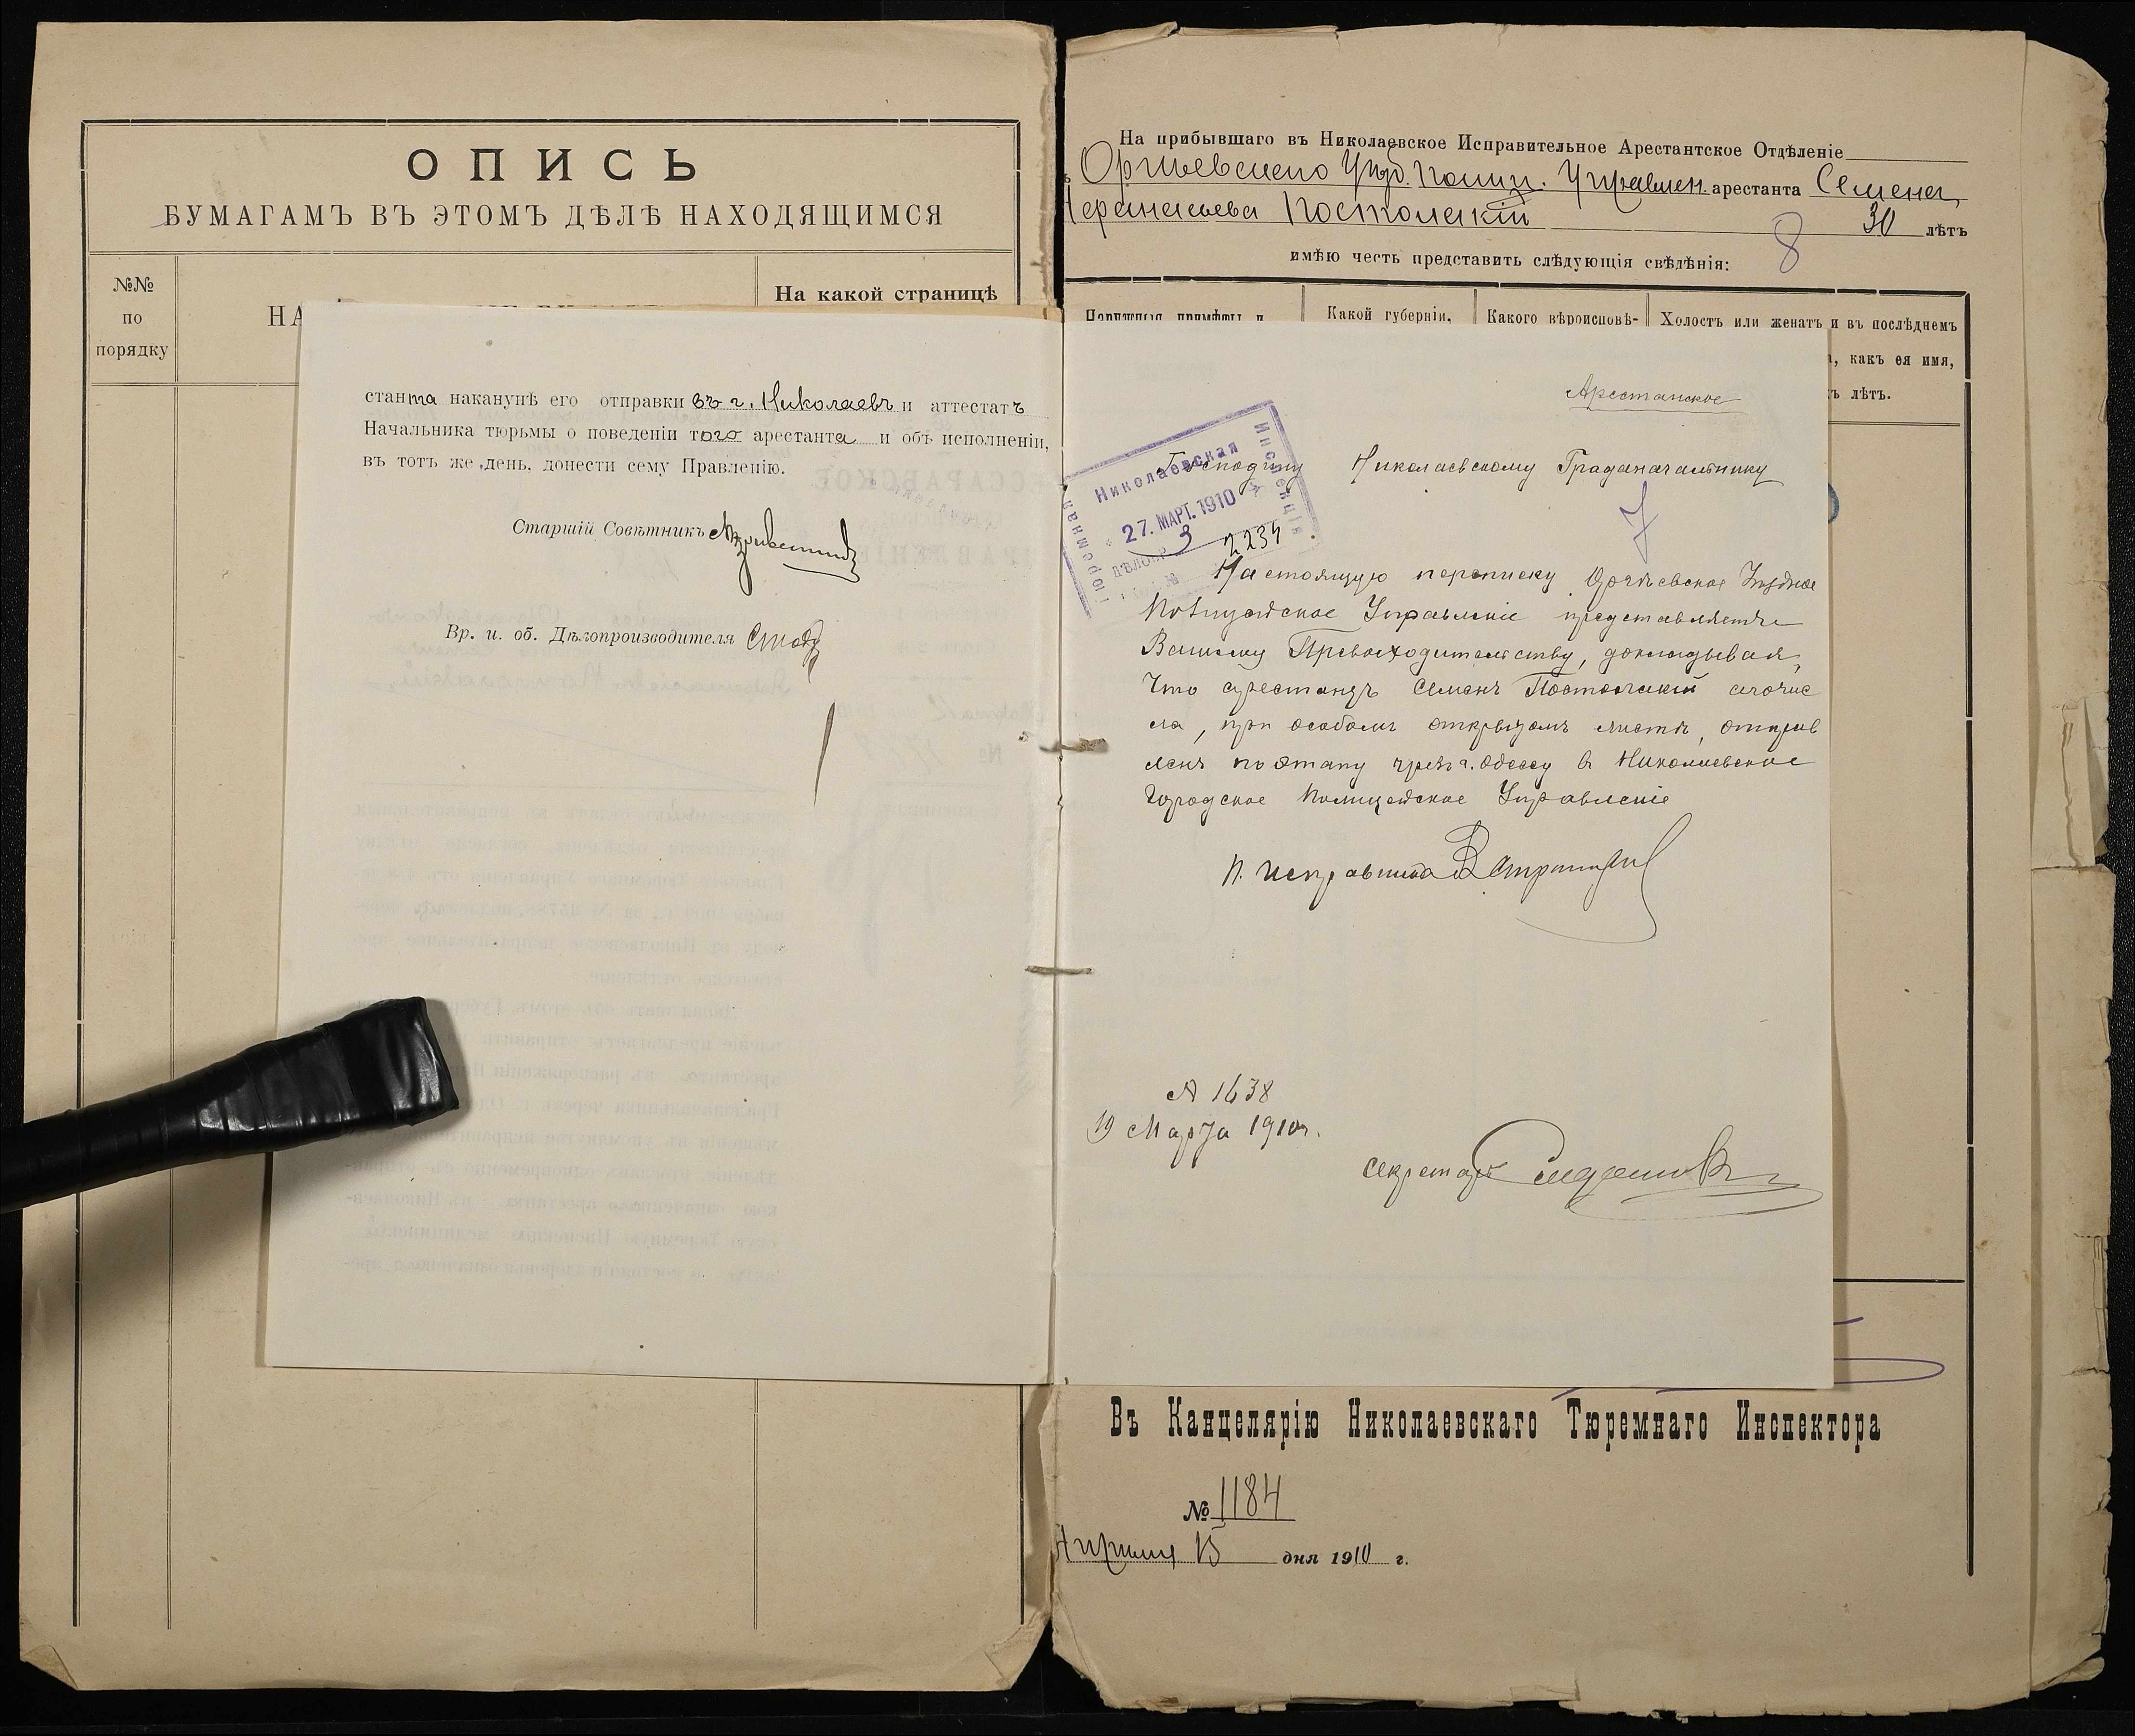 ОПИСЬ
БУМАГАМЪ ВЪ ЭТОМЪ ДѢЛѢ НАХОДЯЩИМСЯ
№№
по
порядку
НА
На какой страницѣ
станта наканунѣ его отправки въ г. Николаевъ и аттестатъ
Начальника тюрьмы о поведеніи того арестанта и объ исполненіи,
въ тотъ же день, донести сему Правленію.
Старшій Совѣтникъ
Вр. и. об. Дѣлопроизводителя
На прибывшаго въ Николаевское Исправительное Арестантское Отдѣленіе
Оргѣевскаго Уѣзд. Полиц. Управлен. арестанта Семена
Афанасьева Постолакій 30 лѣтъ
8
имѣю честь представить слѣдующія свѣдѣнія:
Наружныя примѣты и
Какой губерніи,
Какого вѣроисповѣ-
Холостъ или женатъ и въ послѣднемъ
какъ ея имя,
лѣтъ.
Арестанское
Николаевская
Тюремная
Инспекція
27. МАРТ. 1910
3
2234
Господину Николаевскому Градоначальнику
7
Настоящую переписку Оргѣевское Уѣздное
Полицейское Управленіе представляетъ
Вашему Превосходительству, докладывая,
что арестантъ Семенъ Постолакій сего чис
ла, при особомъ открытомъ листѣ, отправ
ленъ по этапу чрезъ г. Одессу в Николаевское
Городское Полицейское Управленіе
П. Исправника
№ 1638
19 Марта 1910 г.
Секретарь
Въ Канцелярію Николаевскаго Тюремнаго Инспектора
№ 1184
Апрѣля 15 дня 1910 г.